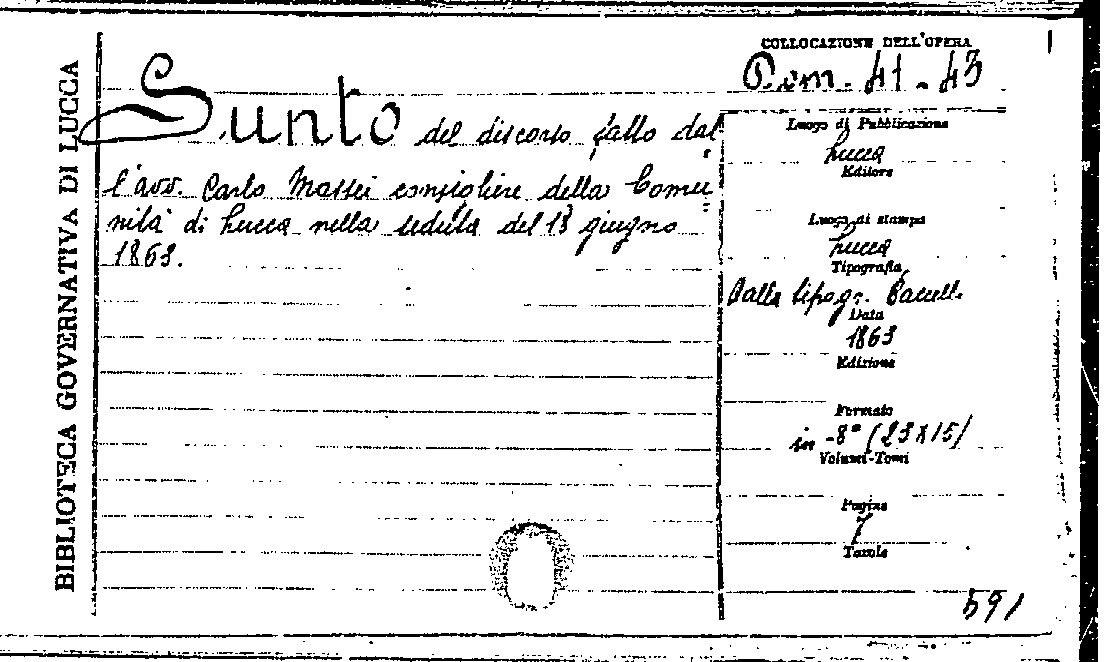 BIBLIOTECA GOVERNATIVA DI LUCCA
Sunto del discorso fatto dal
l'avv. Carlo Massei consigliere della Comu
nità di Lucca nella seduta del 13 giugno
1863.
COLLOCAZIONE DELL'OPERA
41-43
Luogo di Pubblicazione
Lucca
Editore
Luogo di stampa
Lucca
Tipografia
Dalla tipogr.
Data
1863
Edizione
Formato
in -8° (23x15)
Volumi-Tomi
Pagine
7
Tavole
591